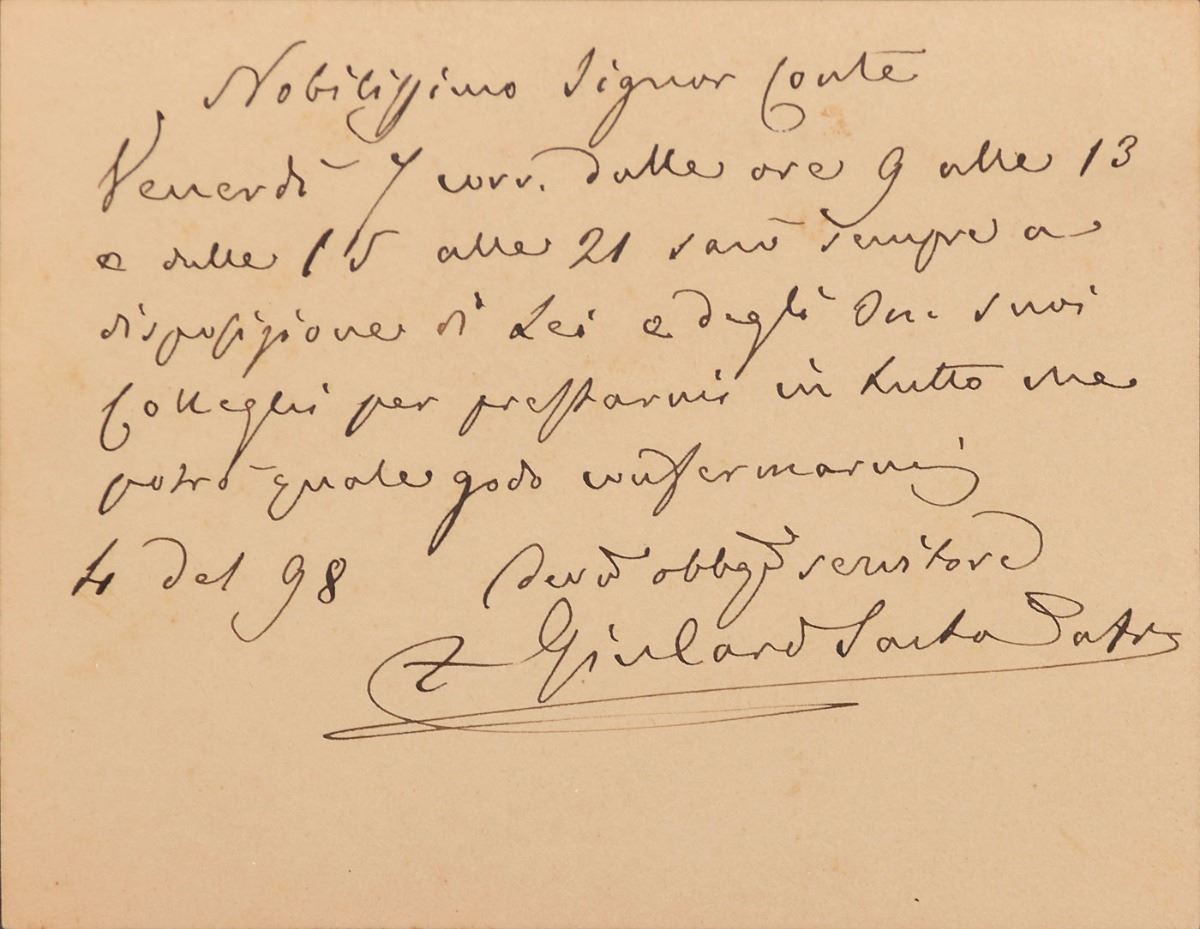 Nobilissimo Signor Conte
Venerdì 7 corr. dalle ore 9 alle 13
e dalle 15 alle 21 sarò sempre a
disposizione di Lei e degli On. suoi
Colleghi per prestarmi in tutto che
potrò quale godo confermarmi
4 del 98 devmo obbgmo servitore